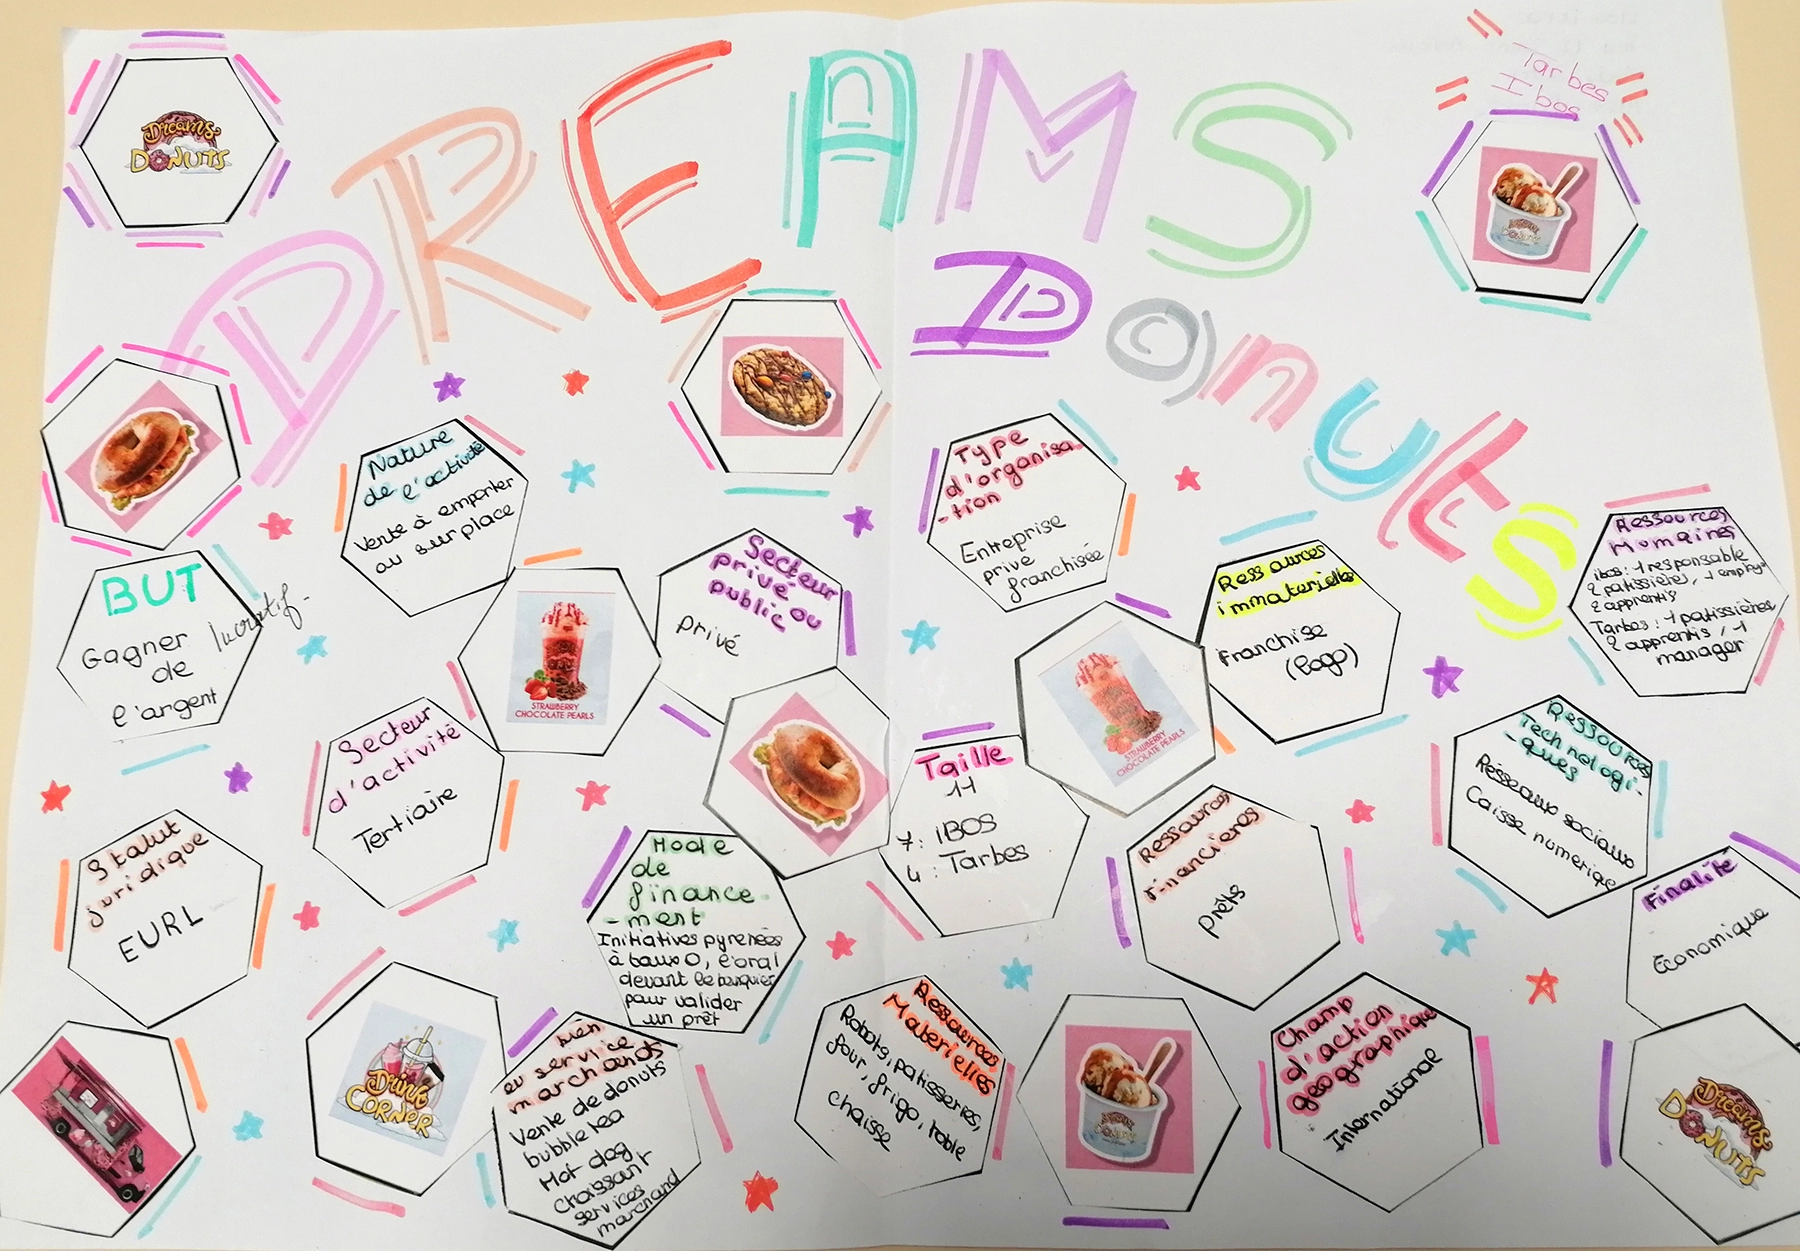 DREAMS
DONUTS
Tarbes
Ibos
Dreams
DONUTS
Nature
de l'activité
Vente à emporter
ou sur place
Type
d'organisa
-tion
Entreprise
privé
franchisée
Ressources
Humaines
ibos : 1 responsable
2 patissières, 1 employé
2 apprentis
Tarbes : 1 patissières
2 apprentis, 1
manager
BUT
Gagner
de
l'argent
lucratif.
Secteur
privé ou
public
privé
Ressources
immaterielles
Franchise
(logo)
STRAWBERRY
CHOCOLATE PEARLS
STRAWBERRY
CHOCOLATE PEARLS
Secteur
d'activité
Tertiaire
Taille
11
7 : IBOS
4 : Tarbes
Ressources
Technologi-
-ques
Réseaux sociaux
Caisse numerique
Statut
juridique
EURL
Mode
de
finance-
-ment
Initiatives pyrenées
à taux 0, l'oral
devant le banquier
pour valider
un prêt
Ressources
Financieres
prêts
Finalité
Économique
DRINK
CORNER
bien
ou service
marchands
Vente de donuts
bubble tea
Hot dog
Croissant
services
marchand
Ressources
Materielles
Robots, patisseries,
four, frigo, table
chaisse
DONUTS
Champ
d'action
géographique
Internationale
Dreams
DONUTS